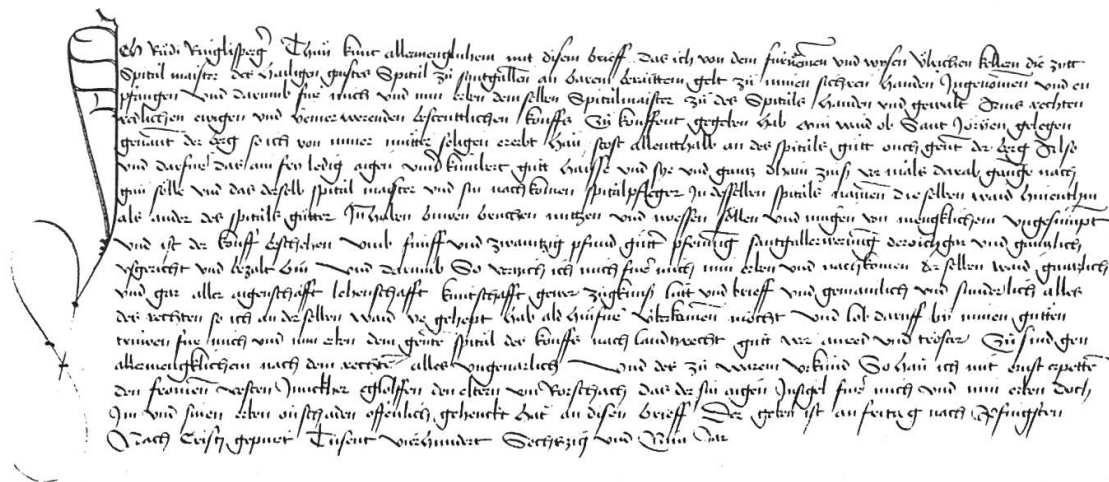 Ich Rüdi Ringlisperg Thün kunt allermenglichem mit disem brieff Das ich von dem fürnämen und wisen Ulrichen kellern die zitt
Spitul maister des hailigen gaistes Spitul zü santgallen an barem beraittem gelt zü minen sichren handen Ingenomen und en
pfangen Und darumb für mich und min erben dem selben Spitulmaister zü des Spituls handen und gewalt Ains rechten
redlichen ewigen und ymerwerenden bestentlichen kouffs Zü kouffent gegeben hab min waid ob Sant Jörgen gelegen
genant der berg so ich von miner mütter säligen ererbt han stost allenthalb an des spituls gütt ouch gent der berg
und darfür das an fry ledig aigen unverkümbert gutt und gantz on zins vor mals darab gange nach
gan sölle und das derselb spitul maister und sin nachkomen spitulpfleger In desselben spituls namen die selben waid hinenthin
als ander des spituls gütter Inhaben buwen bruchen nutzen und niessen söllen und mugen von mengklichem ungesumpt
und ist der kouff beschehen umb fünff und zwaintzig pfund gütter pfenning santgaller werung dero ich gar und gäntzlich
ussgericht und bezalt bin Und darumb So verzich ich mich für mich min erben und nachkomen der selben waid gäntzlich
und gar aller aigenschafft lehenschafft kuntschafft gewer zügknuss lüt und brieff und gemainlich und sunderlich alles
des rechten so ich an der selben waid ye gehept hab ald hinfür überkomen möcht Und lob daruff by minen gütten
trüwen für mich und min erben dem gente spitul des kouffs nach landtzrecht gutt wer und tröster Zü sind gen
allermengklichem nach dem rechten alles ungevarlich Und des zü warem urkünd So han ich mit ernst erpetten
den fromen vesten Junckher Egloffen den eltern von Rorschach das der sin aigen Insigel für mich und min erben doch
Im und sinen erben on schaden offenlich gehenckt hat an disen brieff Der geben ist an fritag nach Pfingsten
Nach Cristz gepurt Tusent vierhundert Sechtzig und Nün Jar